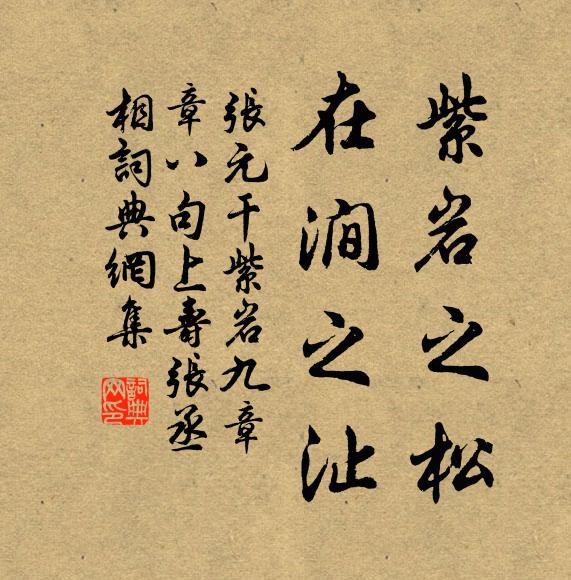 紫岩之松
在澗之沚
張元干紫岩九章
章八句上壽張丞
相詞典網集
詞典
网印